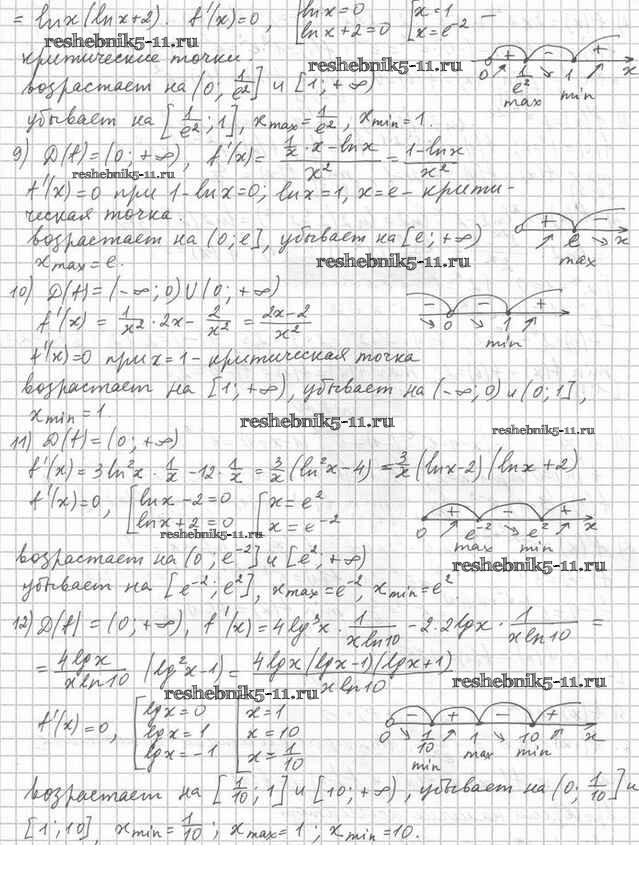 = lnx(lnx+2). f'(x)=0, [lnx=0 [x=1 –
lnx+2=0 x=e⁻²
reshebnik5-11.ru
критические точки.
возрастает на (0; 1/e²] и [1; +∞)
+ – +
0 ↗ 1/e² ↘ 1 ↗ x
max min
reshebnik5-11.ru
убывает на [1/e²; 1], x max = 1/e², x min = 1.
9) D(f)=(0; +∞), f'(x)= (1/x · x – lnx)/x² = (1–lnx)/x²
reshebnik5-11.ru
f'(x)=0 при 1–lnx=0; lnx=1, x=e – крити-
ческая точка.
возрастает на (0; e], убывает на [e; +∞)
+ –
↗ e ↘ x
max
x max = e.
reshebnik5-11.ru
10) D(f)=(–∞; 0)∪(0; +∞)
f'(x) = 1/x² · 2x – 2/x² = (2x–2)/x²
– – +
↘ 0 ↘ 1 ↗
min
f'(x)=0 при x=1 – критическая точка
возрастает на [1; +∞), убывает на (–∞; 0) и (0; 1],
x min = 1
reshebnik5-11.ru
reshebnik5-11.ru
11) D(f)=(0; +∞)
f'(x)=3ln²x · 1/x –12· 1/x = 3/x (ln²x–4) = 3/x (lnx–2)(lnx+2)
f'(x)=0, [lnx–2=0 [x=e²
lnx+2=0 x=e⁻²
reshebnik5-11.ru
+ – +
0 ↗ e⁻² ↘ e² ↗ x
max min
возрастает на (0; e⁻²] и [e²; +∞)
reshebnik5-11.ru
убывает на [e⁻²; e²], x max = e⁻², x min = e².
12) D(f)=(0; +∞), f'(x)=4lg³x · 1/(xln10) –2·2lgx · 1/(xln10) =
= 4lgx/(xln10) (lg²x–1) = 4lgx(lgx–1)(lgx+1)/(xln10)
reshebnik5-11.ru
reshebnik5-11.ru
f'(x)=0, [lgx=0 [x=1
lgx=1 x=10
lgx=–1 x=1/10
– + – +
0 ↘ 1/10 ↗ 1 ↘ 10 ↗ x
min max min
возрастает на [1/10; 1] и [10; +∞), убывает на (0; 1/10] и
[1; 10], x min = 1/10; x max = 1; x min = 10.